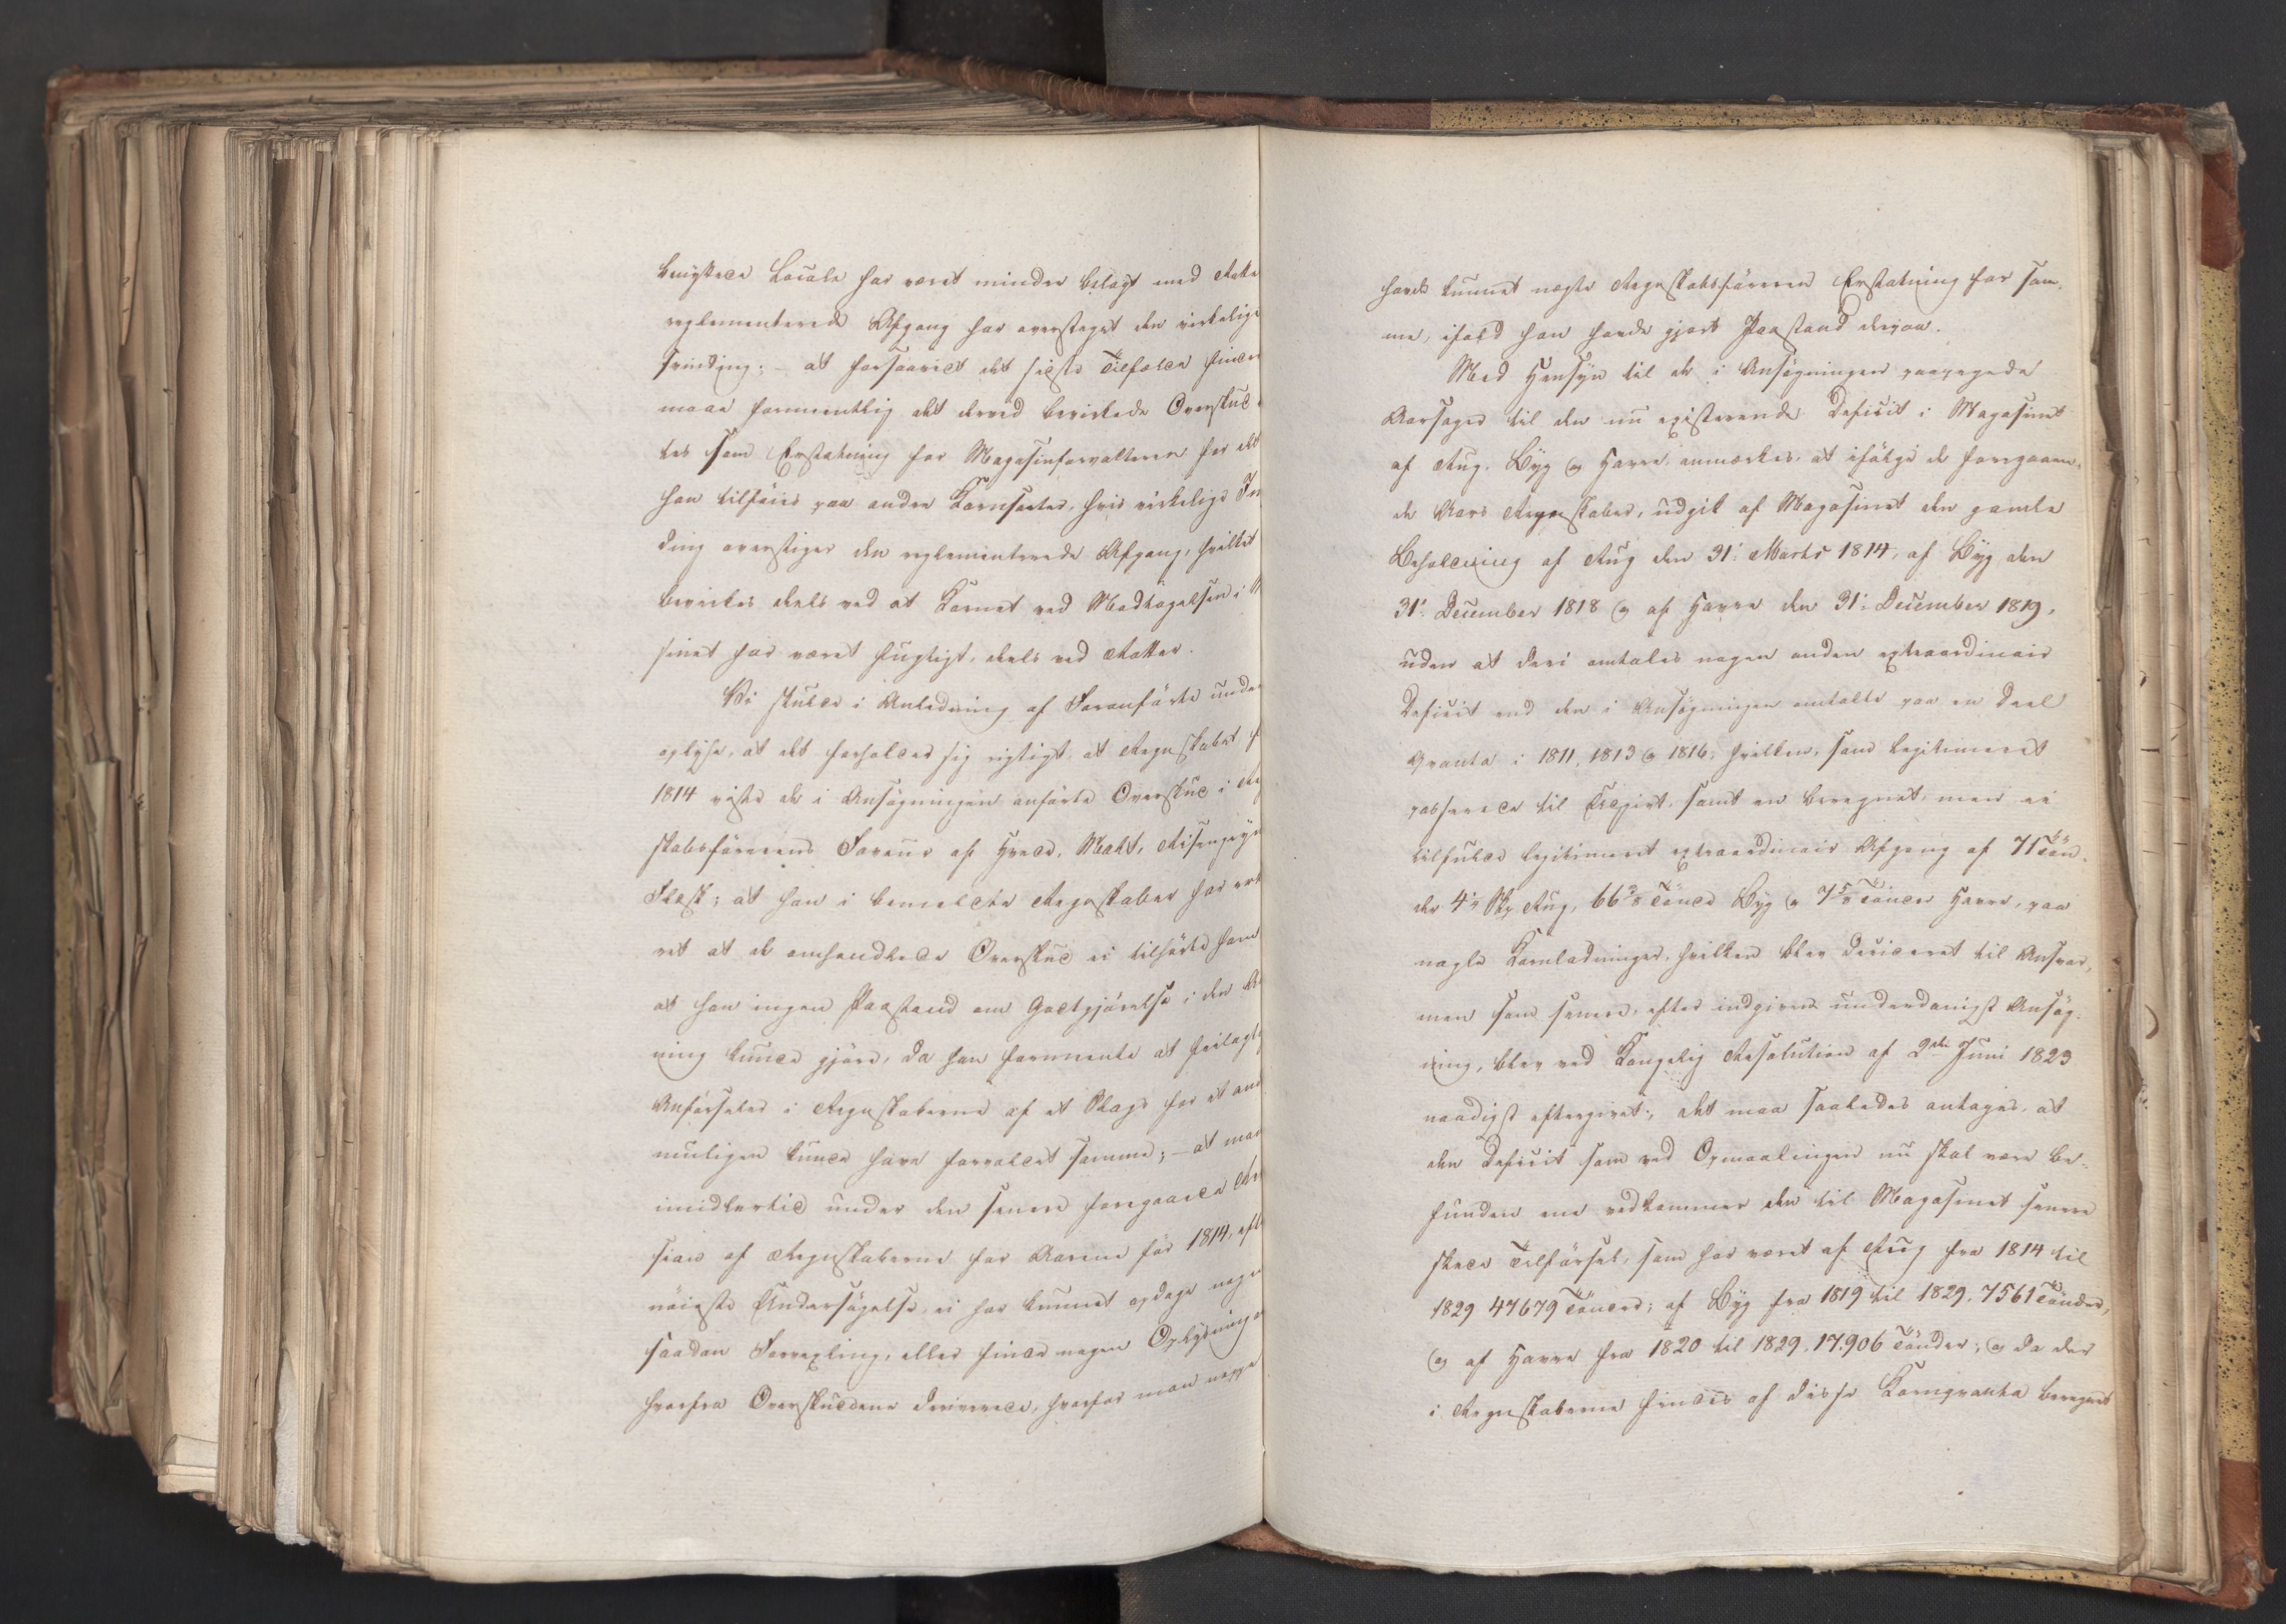 benyttede Locale har været mindre belagt med Rotte
reglementerede Afgang har oversteget den virkelige
svinding; – at forsaavidt det sidste Tilfælde finder
maae formeentlig det derved bevirkede Overskud
tes som Erstatning for Magasinforvalteren for det
han tilføies paa andre Kornsorter, hvis virkelige In
ding overstiger den reglementerede Afgang, hvilket
bevirkes deels ved at Kornet ved Modtagelsen i M
sinet har været fugtigt, deels ved Rotter.
Vi skulde i Anledning af Foranførte under
oplyse, at det forholder sig rigtigt, at Regnskabet f
1814 viste de i Ansøgningen anførte Overskud i Reg
skabsførerens Faveur af Hvede, Malt, Risengryn
Flesk; at han i bemeldte Regnskaber har erk
ret at de omhandlede Overskud ei tilhørte ham
at han ingen Paastand om Godtgjørelse i den An
ning kunde gjøre, da han formeente at feilagtig
Anførseler i Regnskaberne af et Slags for et and
muligen kunde have forvoldet samme; – at man
imidlertid under den senere foregaaede Re
sion af Regnskaberne for Aarene før 1814, eft
nøieste Undersøgelse, ei har kunnet opdage noge
saadan Forvexling, eller finde nogen Oplysning o
hvorfra Overskuddene deriverede, hvorfor man neppe
havde kunnet negte Regnskabsføreren Erstatning for sam-
me, ifald han havde gjort Paastand derpaa.
Med Hensyn til de i Ansøgningen paaegede
Aarsager til den nu existerende Deficit i Magasinet
af Rug, Byg og Havre, anmærkes, at ifølge de foregaaen-
de Aars Regnskaber, udgik af Magasinet den gamle
Beholdning af Rug den 31. Marts 1814, af Byg den
31. December 1818 og af Havre den 31. December 1819,
uden at deri omtales nogen anden extraordinair
Deficit end den i Ansøgningen omtalte paa en Deel
Qvanta i 1811, 1813 og 1816, hvilken, som legitimeret
passerede til Udgivt, samt en beregnet, men ei
tilfulde legitimeret extraordinair Afgang af 71 Tøn-
der 4 Skp Rug, 66 Tønder Byg og 7 Tønder Havre, paa
nogle Kornladninger, hvilken blev decideret til Ansvar,
men som senere, efter indgiven underdanigst Ansøg-
ning, blev ved Kongelig Resolution af 2den Juni 1823
naadigst eftergivet; det maa saaledes antages, at
den Deficit som ved Opmaalingen nu skal være be-
funden ene vedkommer den til Magasinet senere
skede Tilførsel, som har været af Rug fra 1814 til
1829 47679 Tønder; af Byg fra 1819 til 1829, 7561 Tønder,
og af Havre fra 1820 til 1829, 17.906 Tønder; og da der
i Regnskaberne findes af disse Kornqvanta beregnet